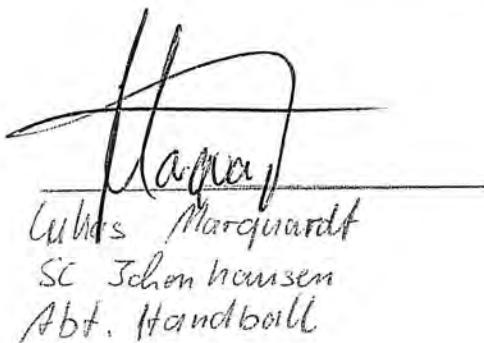 Lukas Marquardt
SC Ichenhausen
Abt. Handball